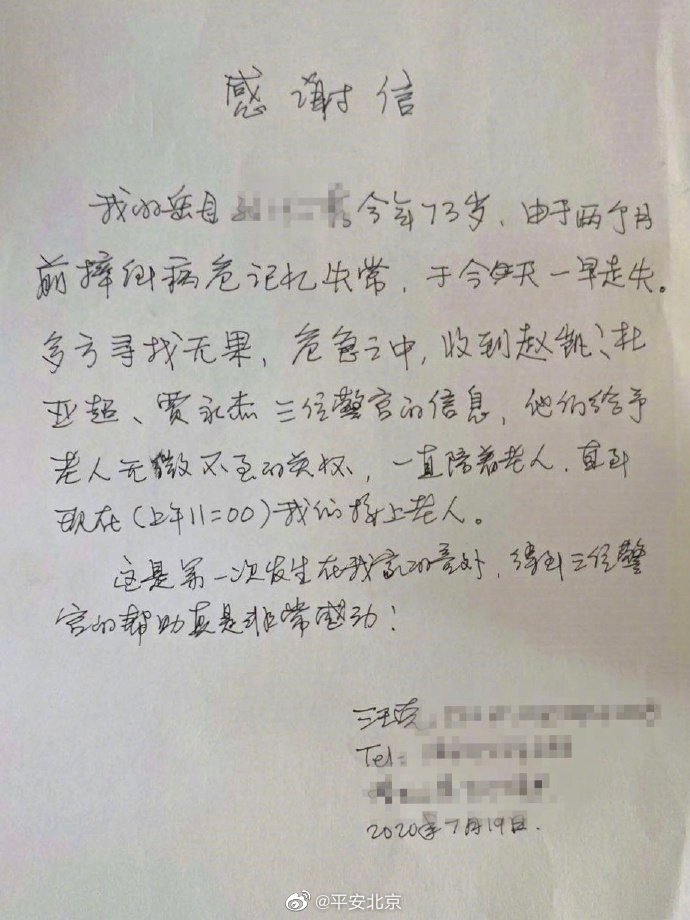 感谢信
我的岳母 今年73岁，由于两个月
前摔倒病危记忆失常，于今天一早走失。
多方寻找无果，危急之中，收到赵凯、杜
亚超、贾永杰三位警官的信息，他们给予
老人无微不至的关怀，一直陪着老人，直到
现在（上午11:00）我们接上老人。
这是第一次发生在我家的意外，得到三位警
官的帮助真是非常感动！
Tel:
2020年7月19日.
@平安北京